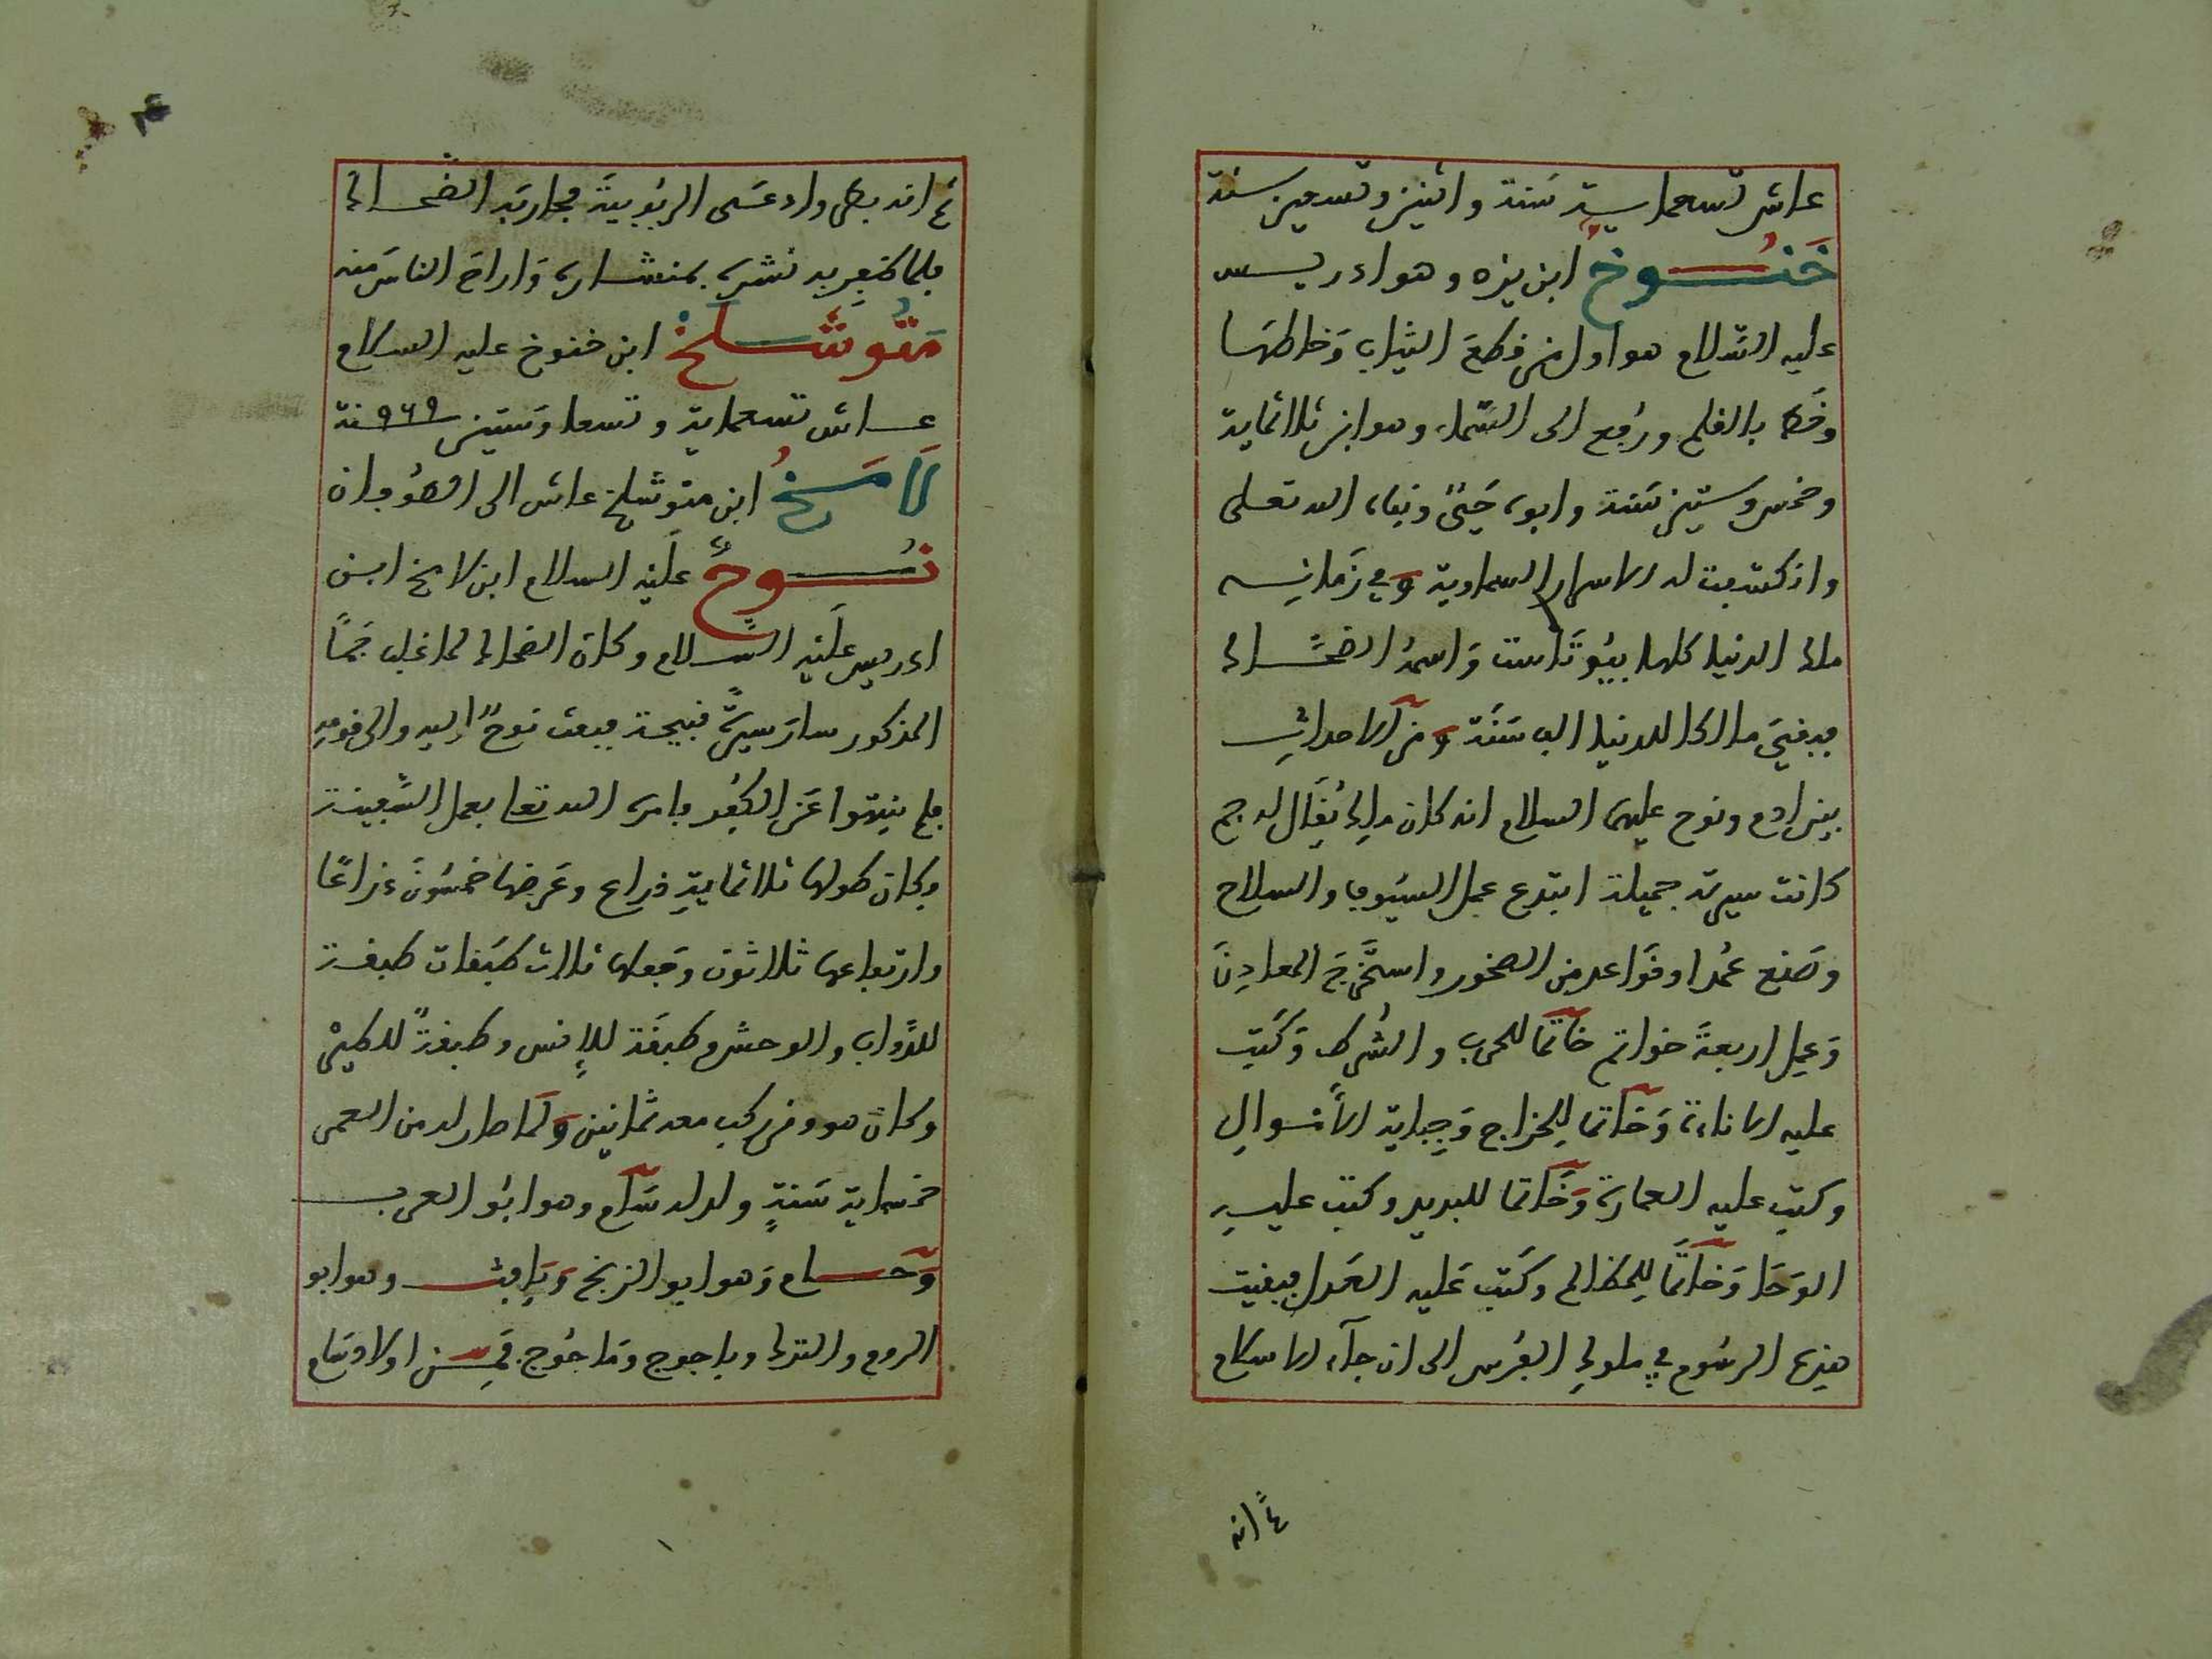 عاش تسعماية سنة واثنين وتسعين سنة
خَنُوخُ ابن يزد وهو ادريس
عليه السّلام هو اول من قطعَ الثياب وَخاطهَا
وخَط بالقلم ورُفِع الى السّماء وهو ابن ثلاثماية
وخمس وستين سَنة وابوه حَيٌّ ونبأه الله تعلى
وانكشفت له الاسرار السماوية وفي زمانِه
ملك الدنيا كلها بيُوتَاسَت وَاسمهُ الضحّاك
فبقيَ مالكا للدنيا الف سَنَة ومن الاحداث
بين ادم ونوح عليهما السلام انه كان ملِك يُقَال له جم
كانت سيرته جميلة ابتدع عمل السيُوف والسلاح
وصَنع عمُدا وقوَاعد من الصخور واستَخرَجَ المعادِنَ
وَعمِل اربعةَ خواتم خاتمًا للحرب والشُرط وَكَتب
عليه الاناءة وَخاتما لِلخراج وَجِباية الأمْوالِ
وكتب عليه العمارة وَخَاتما للبريد وكتب عليهِ
الوَحَا وَخاتمًا لِلمظالم وكَتب عَليه العَدل فبقيت
هذه الرسُوم في ملوكِ الفُرس الى ان جآء الاسلام
ثمّ انه
ثمَ انه بطر وادعَى الربُوبيةَ فحاربَه الضحاك
فلما ظفِر به نشره بمنشاره وَاراحَ الناسَ منه
مَتُّوشَلَخْ ابن خنوخ عليه السلام
عاش تسعماية وتسعا وَستين ٩٦٩ سنة
لَامَخُ ابن متوشلخ عاش الى الطوُفان
نُوحٌ علَيْه السلام ابن لامخ ابن
ادريس علَيْه السّلام وكان الضحاك لما غلب جَمًا
المذكور سارَ سيرةً قبيحة فبعث نوحٌ إليه والى قومِه
فلم ينتهوا عَن الكُفر فامره الله تعا بعمل السَّفينة
وكان طولها ثلاثمايةِ ذراع وعَرضها خمسُونَ ذراعًا
وارتفاعها ثلاثون وَجَعلها ثلاث طبَقات طبقة
للدَّواب والوحش وطبقَة لِلإنس وطبقةً للطيْر
وكان هو ومن ركب معه ثمانين وَلَما صار له من العمر
خمسماية سَنةٍ ولد له سَآم وهو ابُو العرب
وَحَام وَهو ابو الزنج وَيَافِث وهو ابو
الروم والترك وياجوج ومَاجُوج فَمِن اولاد سَام